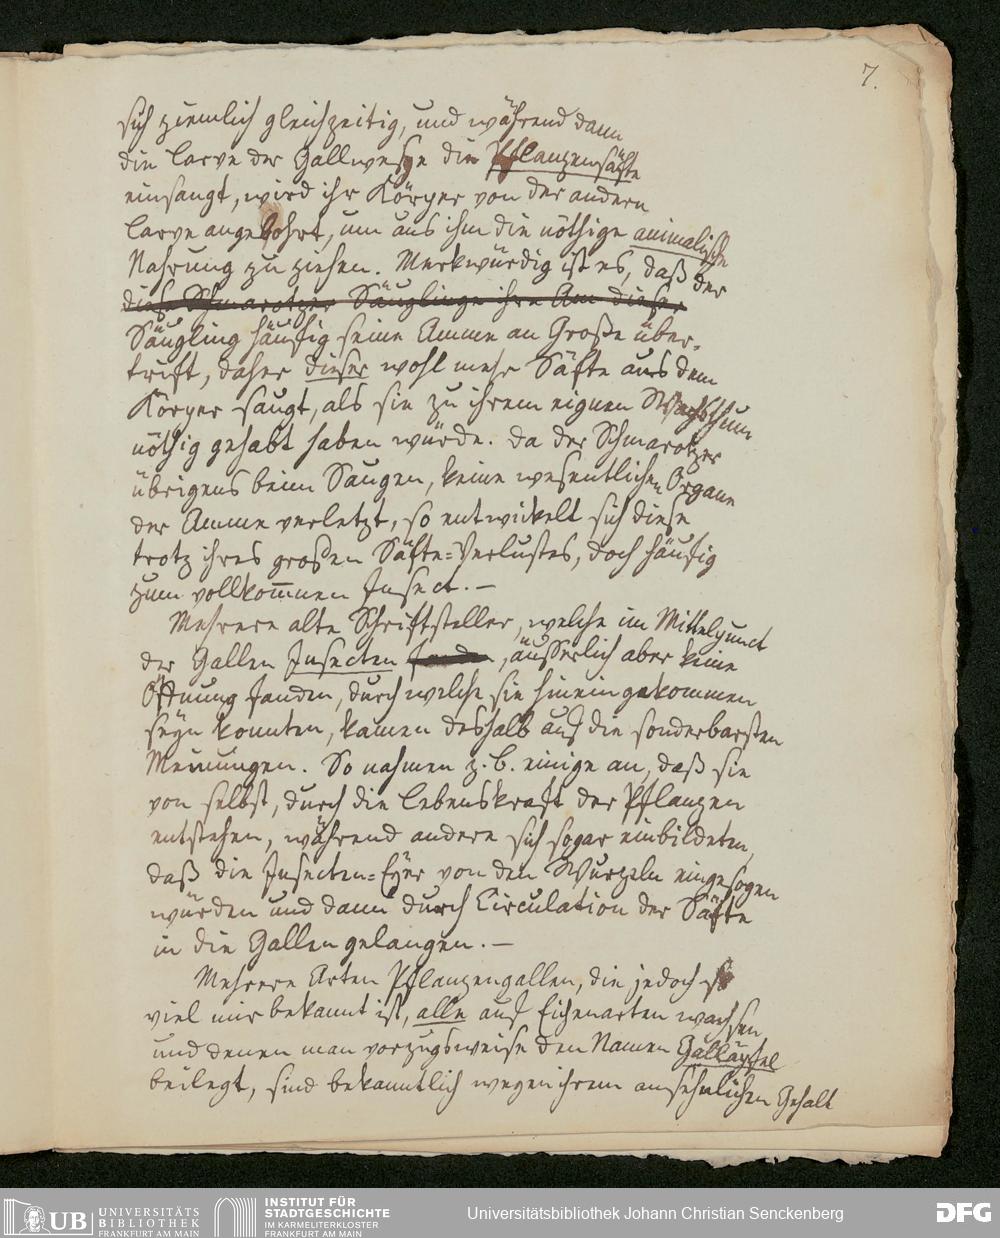 7.
sich ziemlich gleichzeitig, und während dann
die Larve der Gallwespe die Pflanzensäfte
einsaugt, wird ihr Körper von der andern
Larve angebohrt, um aus ihm die nöthige animalische
Nahrung zu ziehen. Merkwürdig ist es, daß der
diese Schmarotzer Säuglinge ihre Am dieser
Säugling häufig seine Amme an Große über-
trift, daher dieser wohl mehr Säfte aus dem
Körper saugt, als sie zu ihrem eignen Wachsthum
nöthig gehabt haben würde. Da der Schmarotzer
übrigens beim Saugen, keine wesentlichen Organe
der Amme verletzt, so entwickelt sich diese
trotz ihres großen Säfte=Verlustes, doch häufig
zum vollkom̅nen Insect. —
Mehrere alte Schriftsteller, welche im Mittelpunct
der Gallen Insecten fanden, äusserlich aber keine
Öffnung fanden, durch welche sie hineingekommen
seyn konnten, kamen deshalb auf die sonderbarsten
Meinungen. So nahmen z. B. einige an, daß sie
von selbst, durch die Lebenskraft der Pflanzen
entstehen, während andere sich sogar einbildeten,
daß die Insecten=Eyer von den Wurzeln eingesogen
würden und dann durch Circulation der Säfte
in die Gallen gelangen. —
Mehrere Arten Pflanzengallen, die jedoch so
viel mir bekannt ist, alle auf Eichenarten wachsen
und denen man vorzugsweise den Namen Galläpfel
beilegt, sind bekanntlich wegen ihrem ansehnlichen Gehalt
UB UNIVERSITÄTS
BIBLIOTHEK
FRANKFURT AM MAIN
INSTITUT FÜR
STADTGESCHICHTE
IM KARMELITERKLOSTER
FRANKFURT AM MAIN
Universitätsbibliothek Johann Christian Senckenberg
DFG